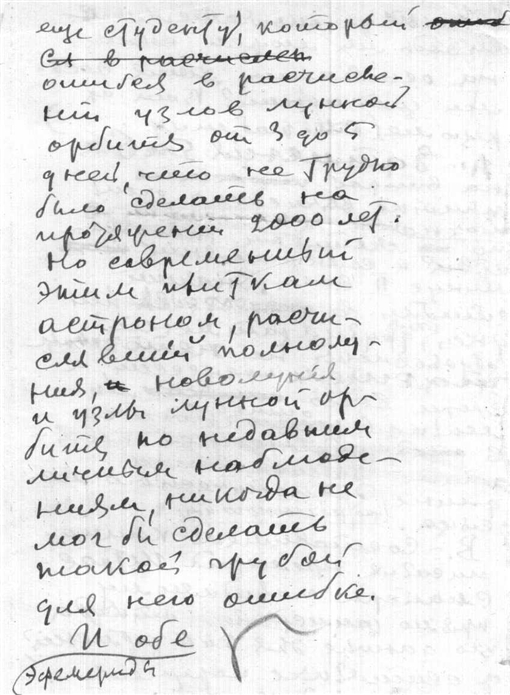 еще студенту, который
ошибся в расчисле-
нии узлов лунной
орбиты от 3 до 5
дней что не трудно
было сделать на
протяжении 2000 лет.
Но современный
этим пыткам
астроном, расчи-
слявший полнолу-
ния, новолуния
и узлы лунной ор-
биты по недавним
личным наблюде-
ниям, никогда не
мог бы сделать
такой грубой
для него ошибки.
И обе
Эфемериды